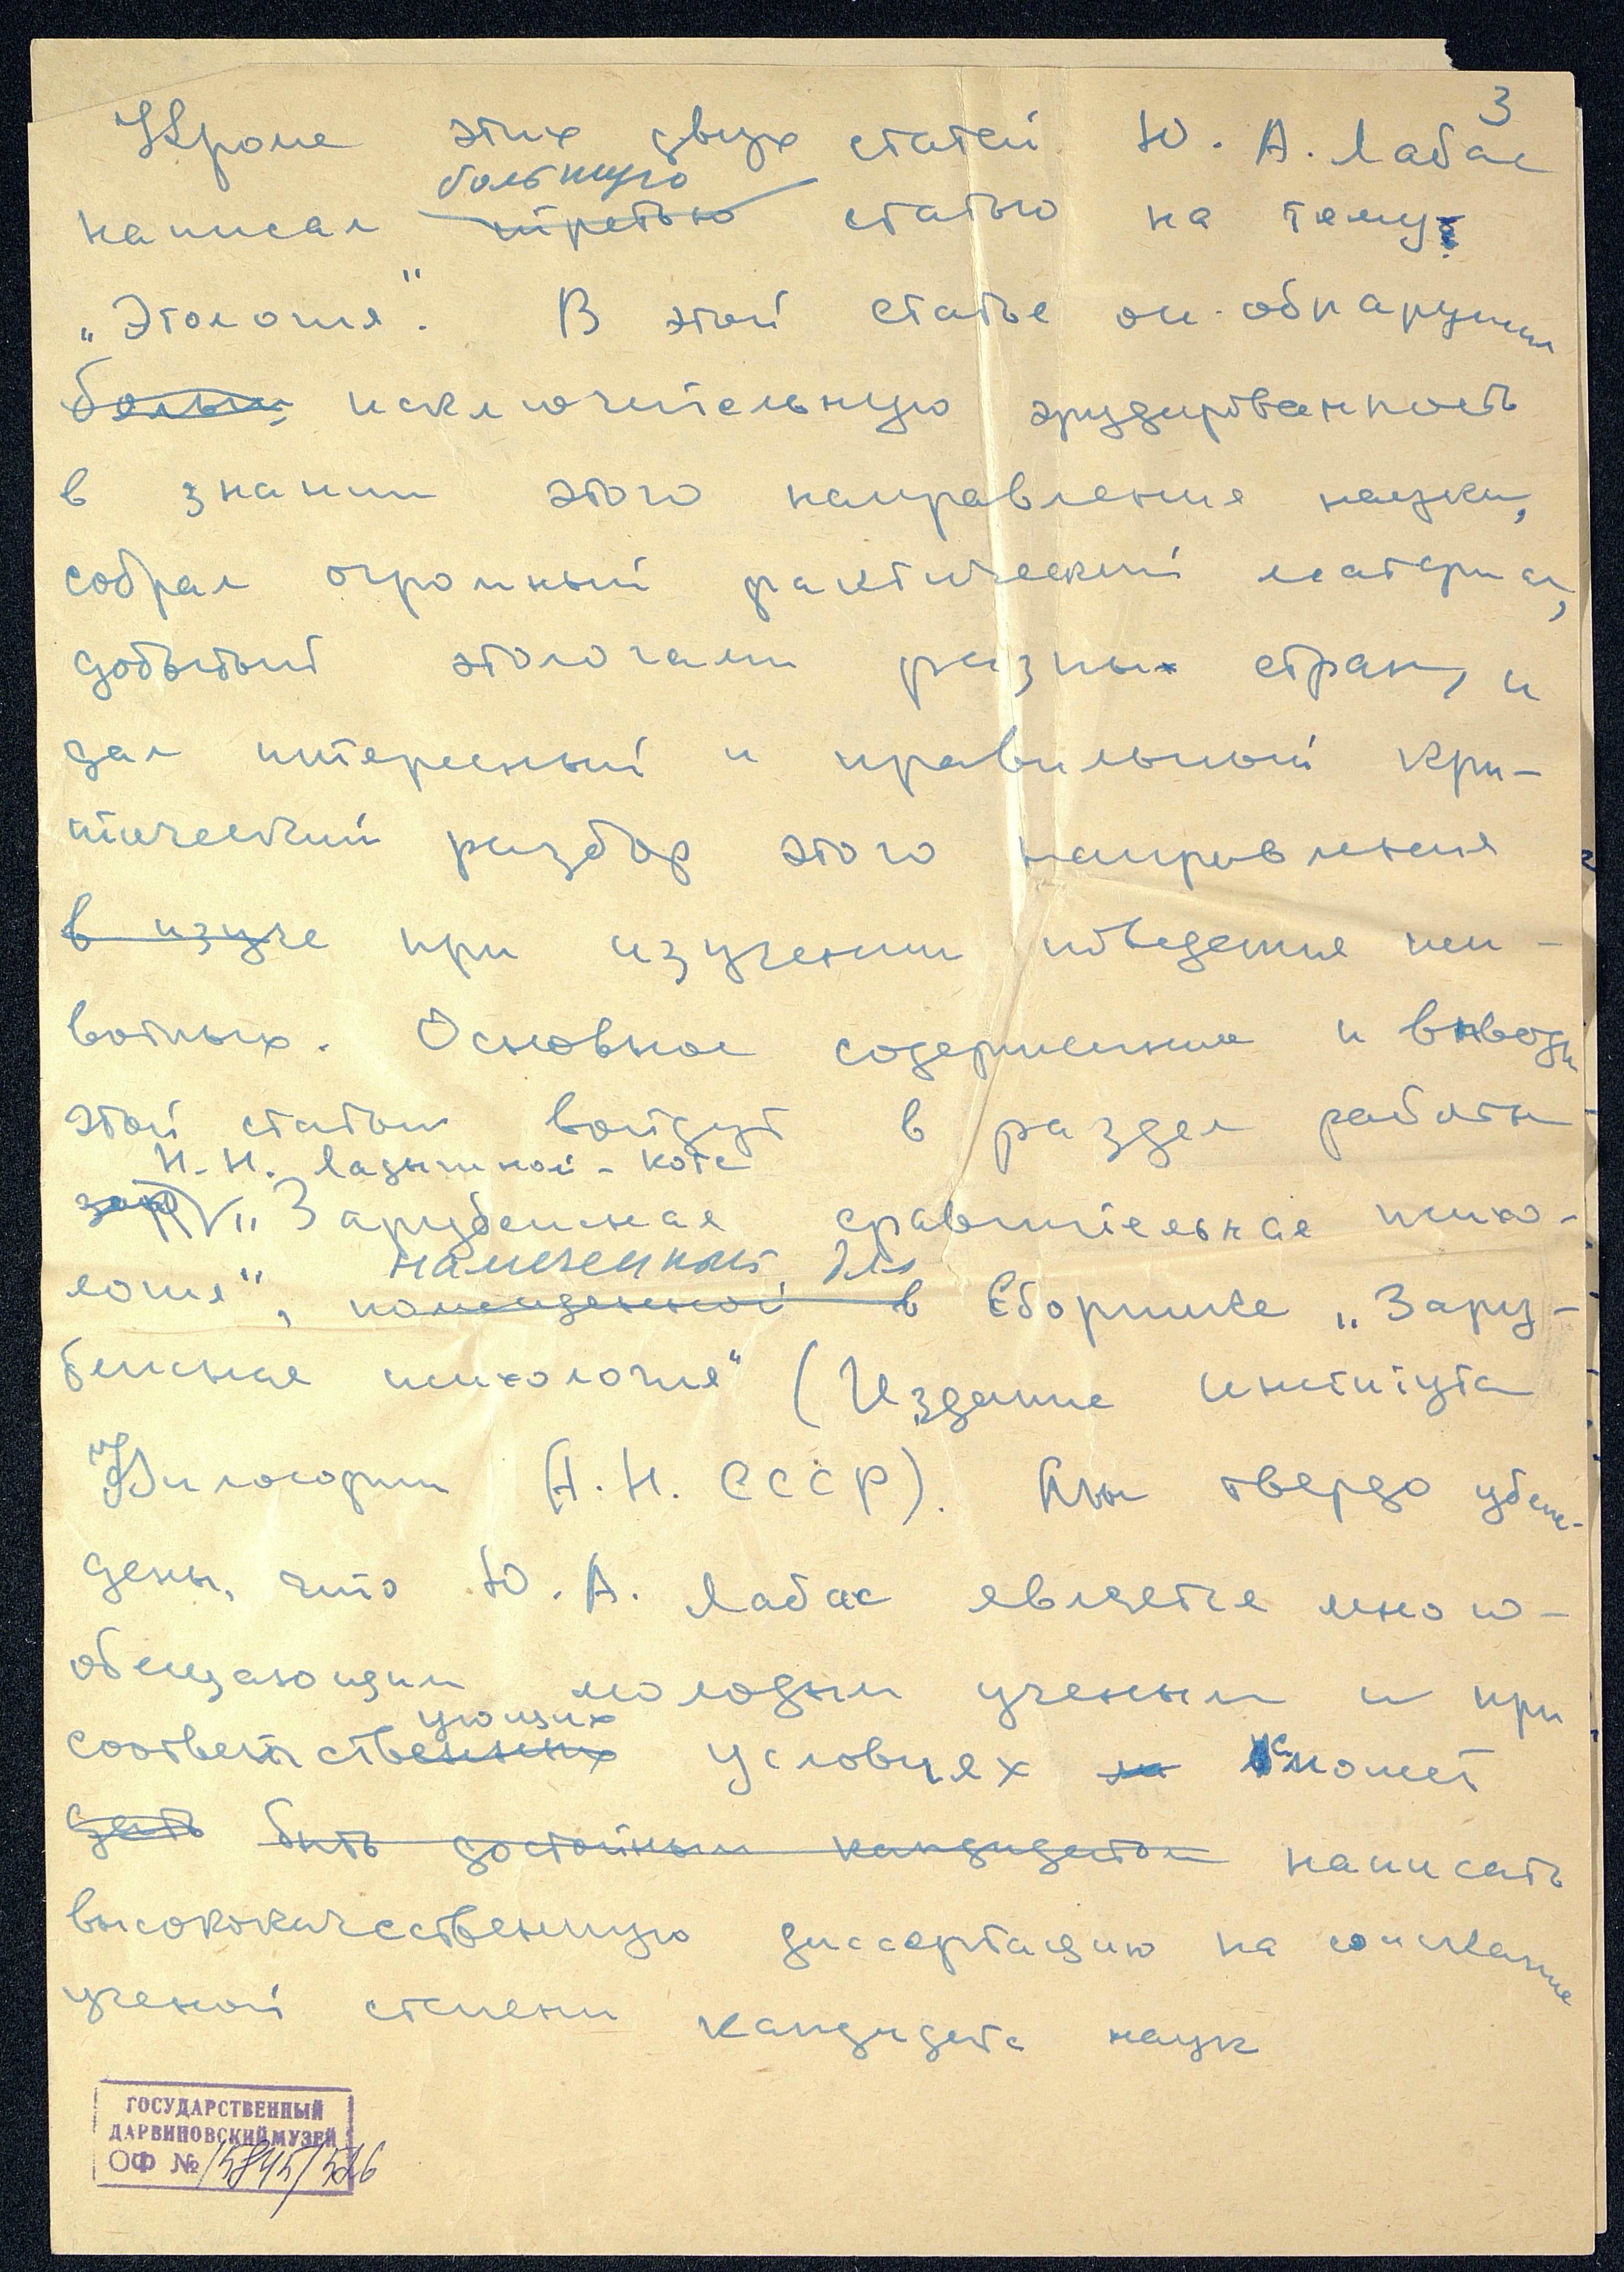 3
Кроме этих двух статей Ю. А. Лабас
большую
написал третью статью на тему:
„Этология". В этой статье он обнаружил
больш исключительную эрудированность
в знании этого направления науки,
собрал огромный фактический материал,
добытый этологами разных стран, и
дал интересный и правильный кри-
тический разбор этого направления
в изуче при изучении поведения жи-
вотных. Основное содержание и выводы
этой статьи войдут в раздел работы
Н. Н. Ладыгиной-Котс
„Зарубежная сравнительная психо-
намеченный для
логия", помещенной в Сборнике „Зару-
бежная психология" (Издание института
Философии А. Н. СССР). Мы твердо убеж-
дены, что Ю. А. Лабас является много-
обещающим молодым ученым и при
ующих
соответственных условиях сможет
дать быть достойным кандидатом написать
высококачественную диссертацию на соискание
ученой степени кандидата наук
ГОСУДАРСТВЕННЫЙ
ДАРВИНОВСКИЙ МУЗЕЙ
ОФ № 15845/526